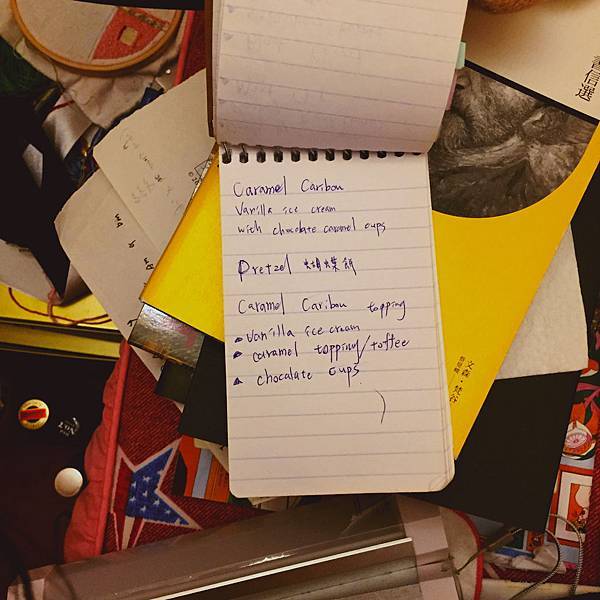 Caramel Caribou
Vanilla ice cream
with chocolate caramel cups
Pretzel 蝴蝶餅
Caramel Caribou topping
vanilla ice cream
caramel topping/toffee
chocalate cups
書信選
文森·梵谷